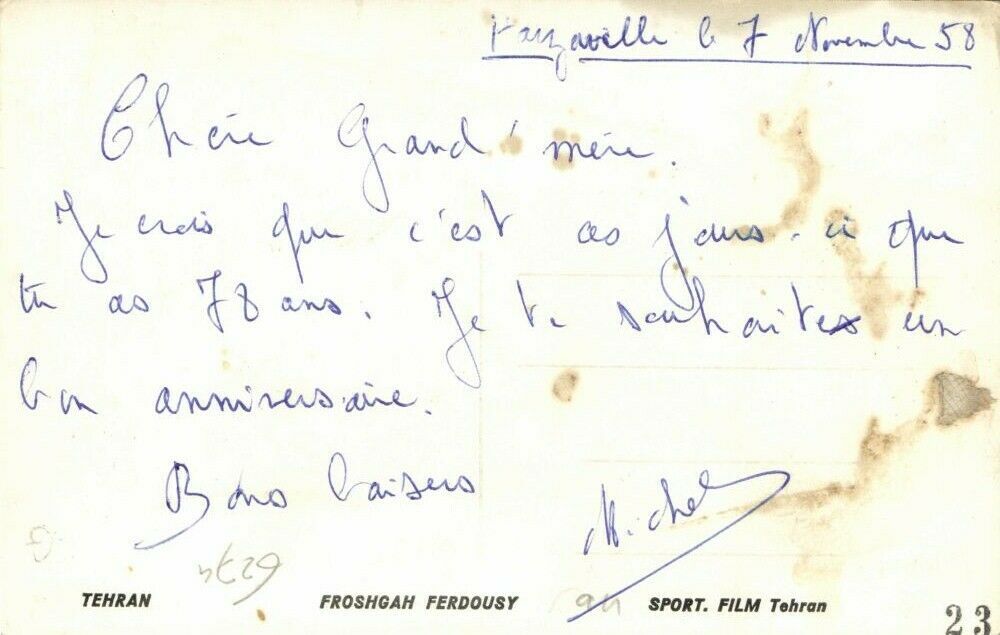 le 7 Novembre 58
Chère Grand'mère.
Je crois que c'est ces jours-ci que
tu as 78 ans. Je te souhaite un
bon anniversaire.
Bons baisers
Michel
TEHRAN FROSHGAH FERDOUSY SPORT. FILM Tehran
23